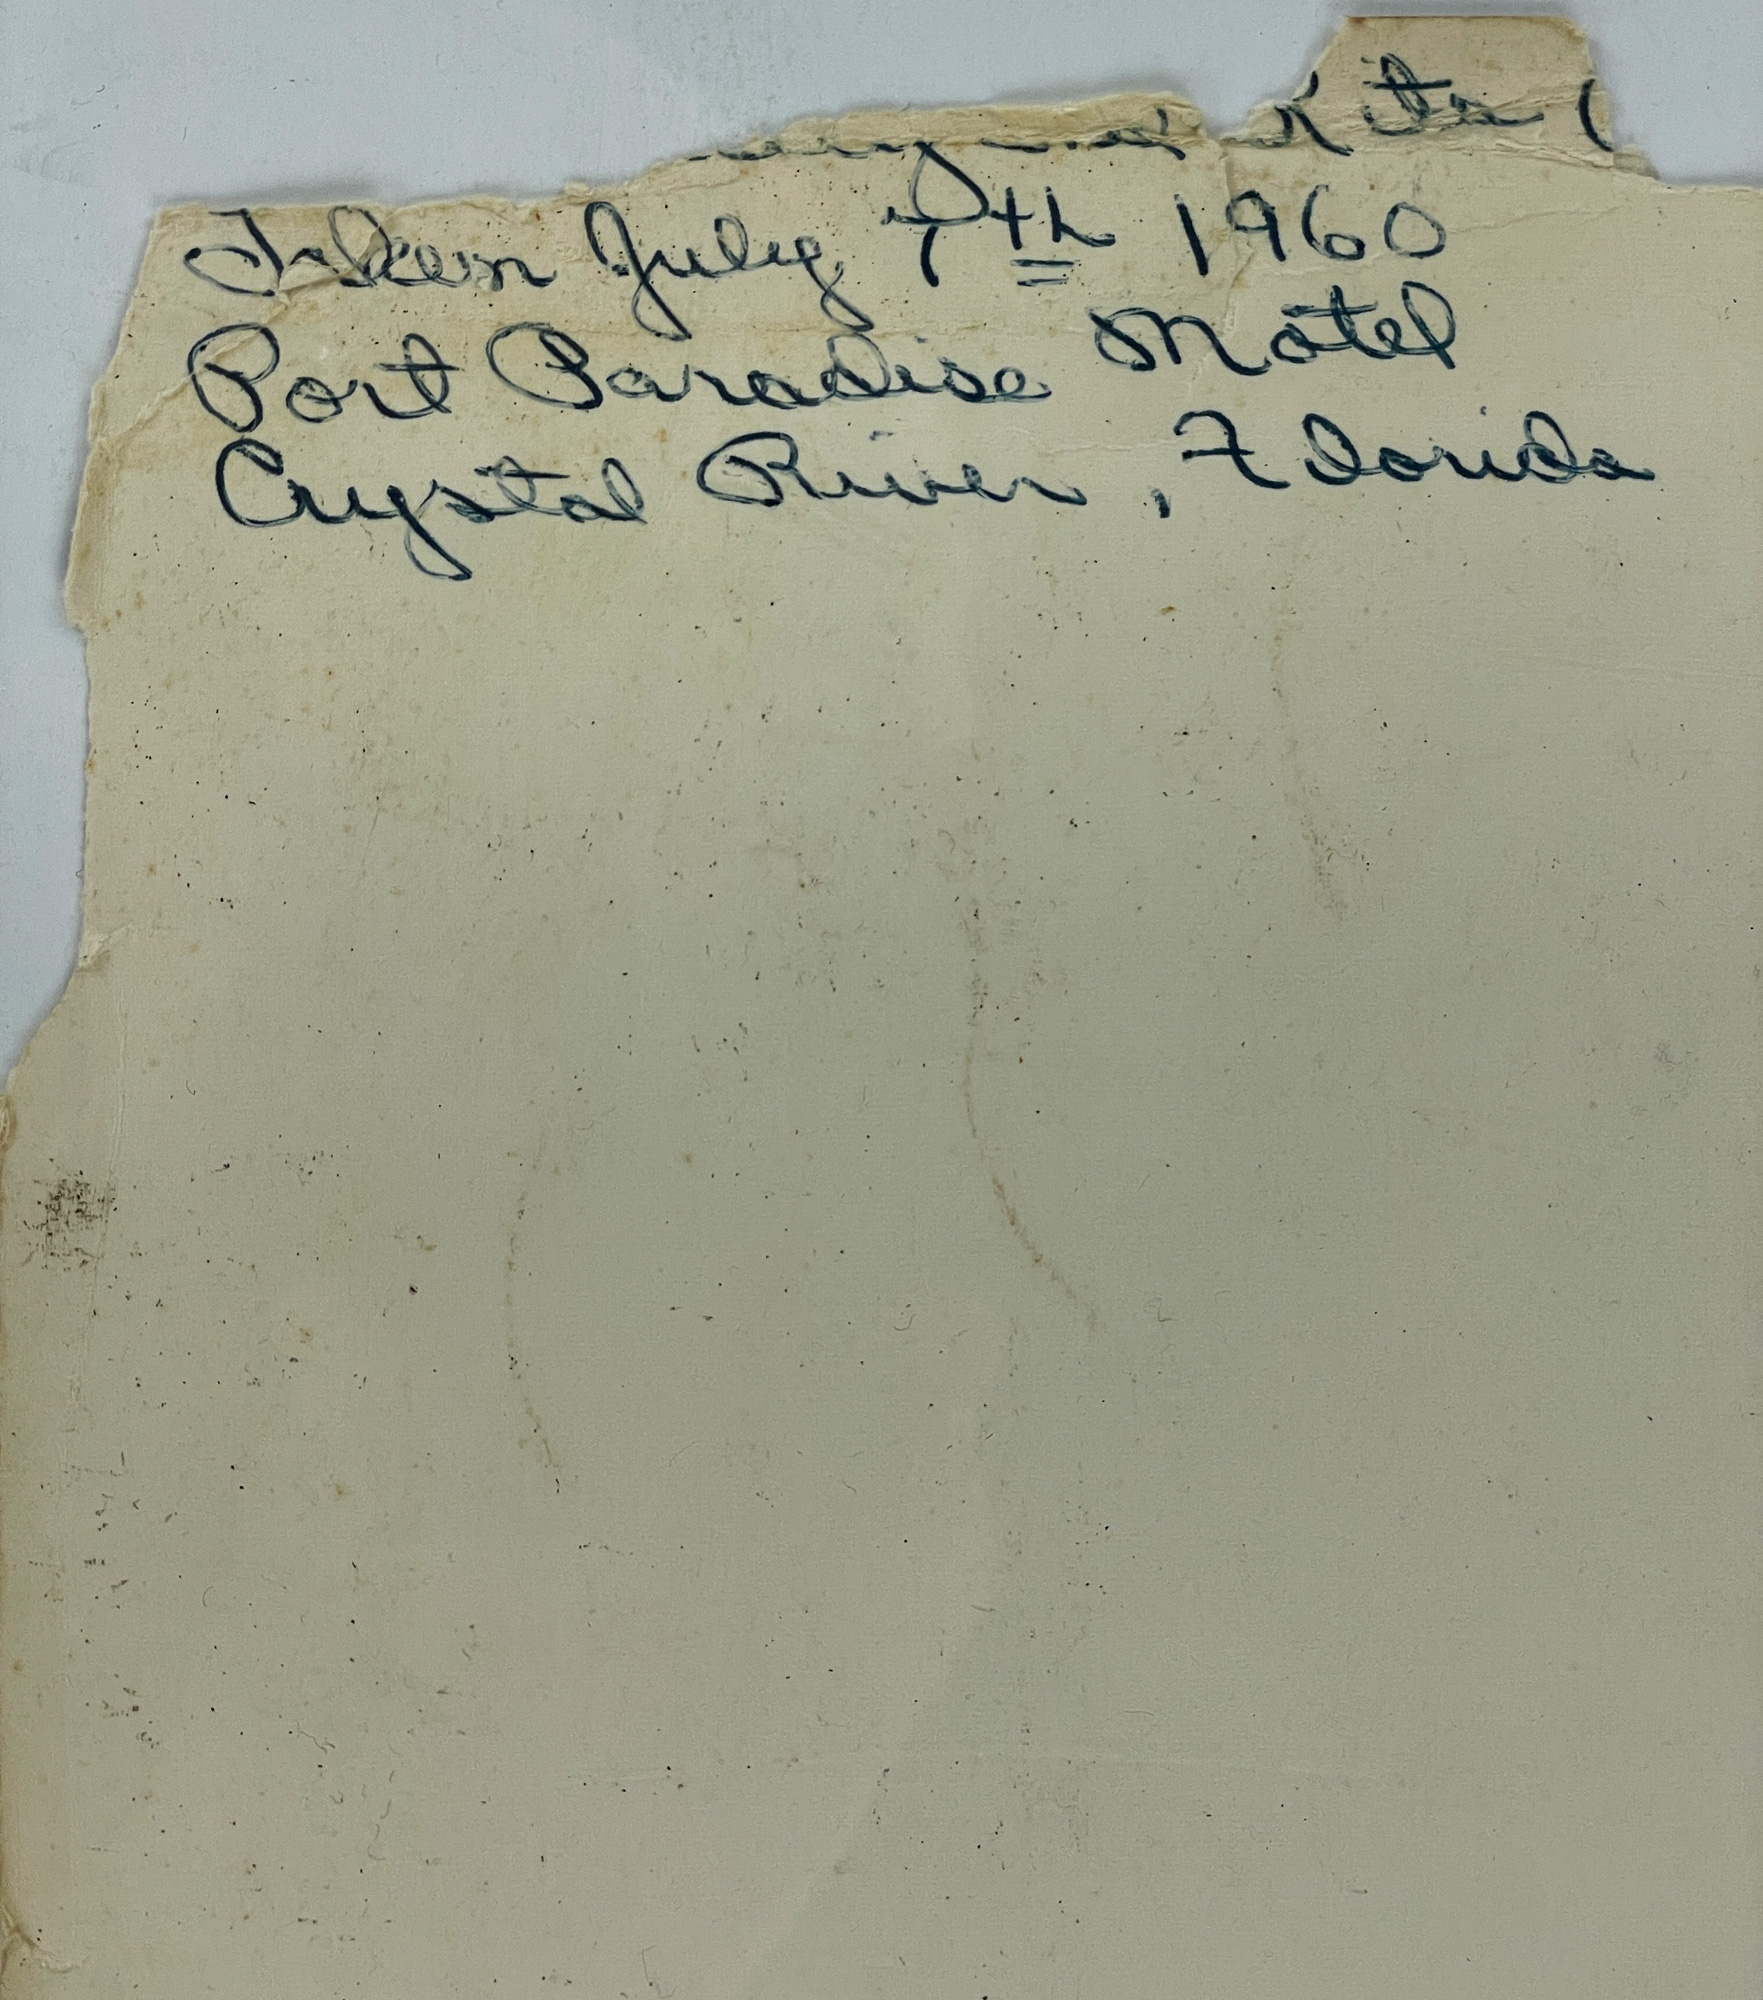 Taken July 7th 1960
Port Paradise Motel
Crystal River, Florida